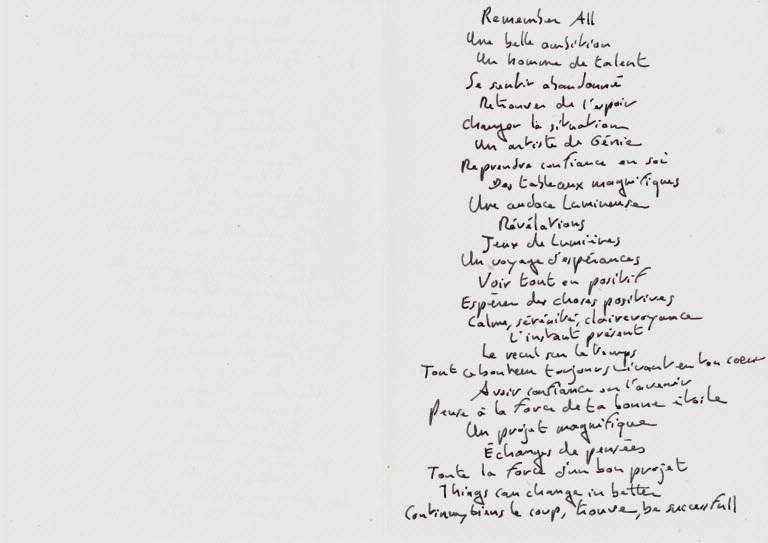 Remember All
Une belle ambition
Un homme de talent
Se sentir abandonné
Retrouver de l'espoir
Changer la situation
Un artiste de Génie
Reprendre confiance en soi
Des tableaux magnifiques
Une audace Lumineuse
Révélations
Jeux de Lumières
Un voyage d'espérances
Voir tout en positif
Espérer des choses positives
Calme, sérénité, clairevoyance
L'instant présent
Le recul sur le temps
Tout ce bonheur toujours vivant en ton coeur
Avoir confiance en l'avenir
Pense à la Force de ta bonne étoile
Un projet magnifique
Échanges de pensées
Toute la Force d'un bon projet
Things can change in better
le coup, trouve, be successfull